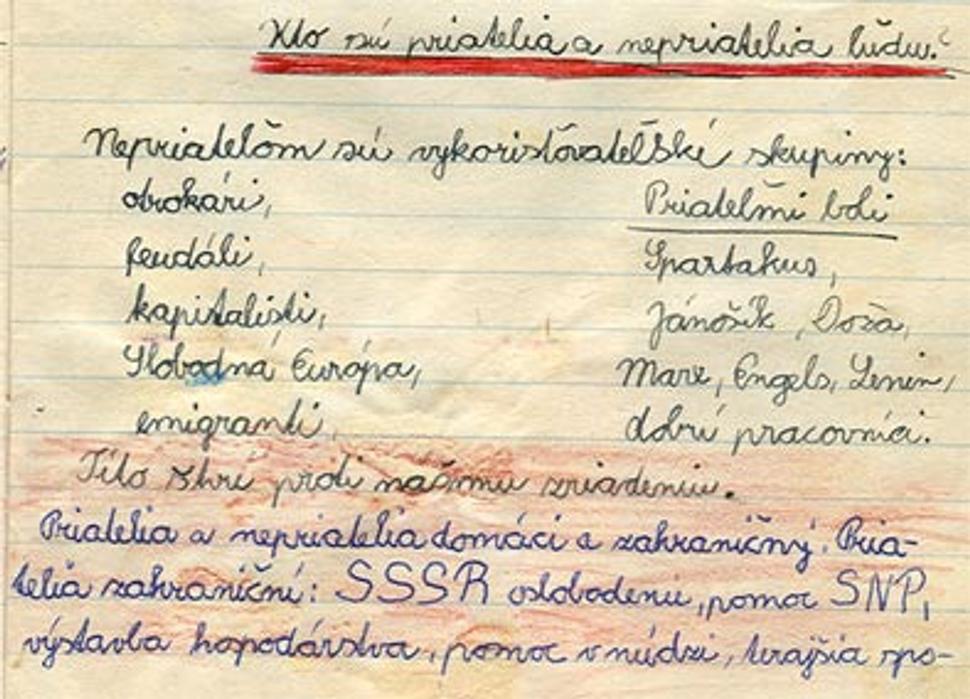 Kto sú priatelia a nepriatelia ľudu?
Nepriateľom sú vykorisťovateľské skupiny:
otrokári,
feudáli,
kapitalisti,
Slobodná Európa,
emigranti,
Priateľmi boli
Spartakus,
Jánošík, Doža,
Marx, Engels, Lenin,
dobrí pracovníci.
Títo proti nášmu zriadeniu.
Priatelia a nepriatelia domáci a zahraničný. Pria-
telia zahraniční: SSSR oslobodenie, pomoc SNP,
výstavba hopodárstva, pomoc v núdzi, terajšia spo-